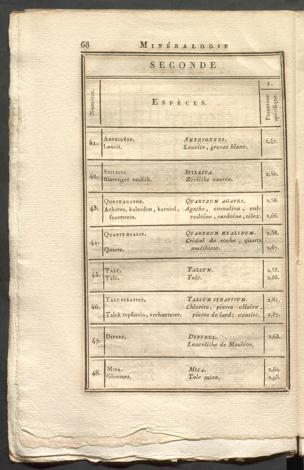 68 MINÉRALOGIE
SECONDE
Numéros.
ESPÈCES.
1.
Pesanteur spécifique.
41. AMPHIGÈNE. AMPHIGENES. 2,47.
Leuzit. Leucite, grenat blanc.
42. STILBITE STILBITA. 2,50.
Blættriger zeolith. Zéolithe nacrée.
43. QUARTZ AGATHE. QUARTZUM AGATES. 2,58.
Achates, kalzedon, karniol, Agathe, cornaline, cal-
feuerstein. cédoine, sardoine, silex. 2,66.
44. QUARTZ HYALIN. QUARTZUM HYALINUM. 2,58.
Cristal de roche; quartz
Quartz. améthiste. 2,67.
45. TALC. TALCUM. 2,58.
Talc. Talc. 2,66.
46. TALC STÉATITE. TALCUM STEATITUM. 2,61.
Chlorite, pierre ollaire,
Talck topfstein, verhærteter. pierre de lard; stéatite. 2,87.
47. DIPYRE. DIPYRUS. 2,63.
Leucolithe de Mauléon.
48. MICA. MICA.
Glimmer. Talc mica. 2,93.